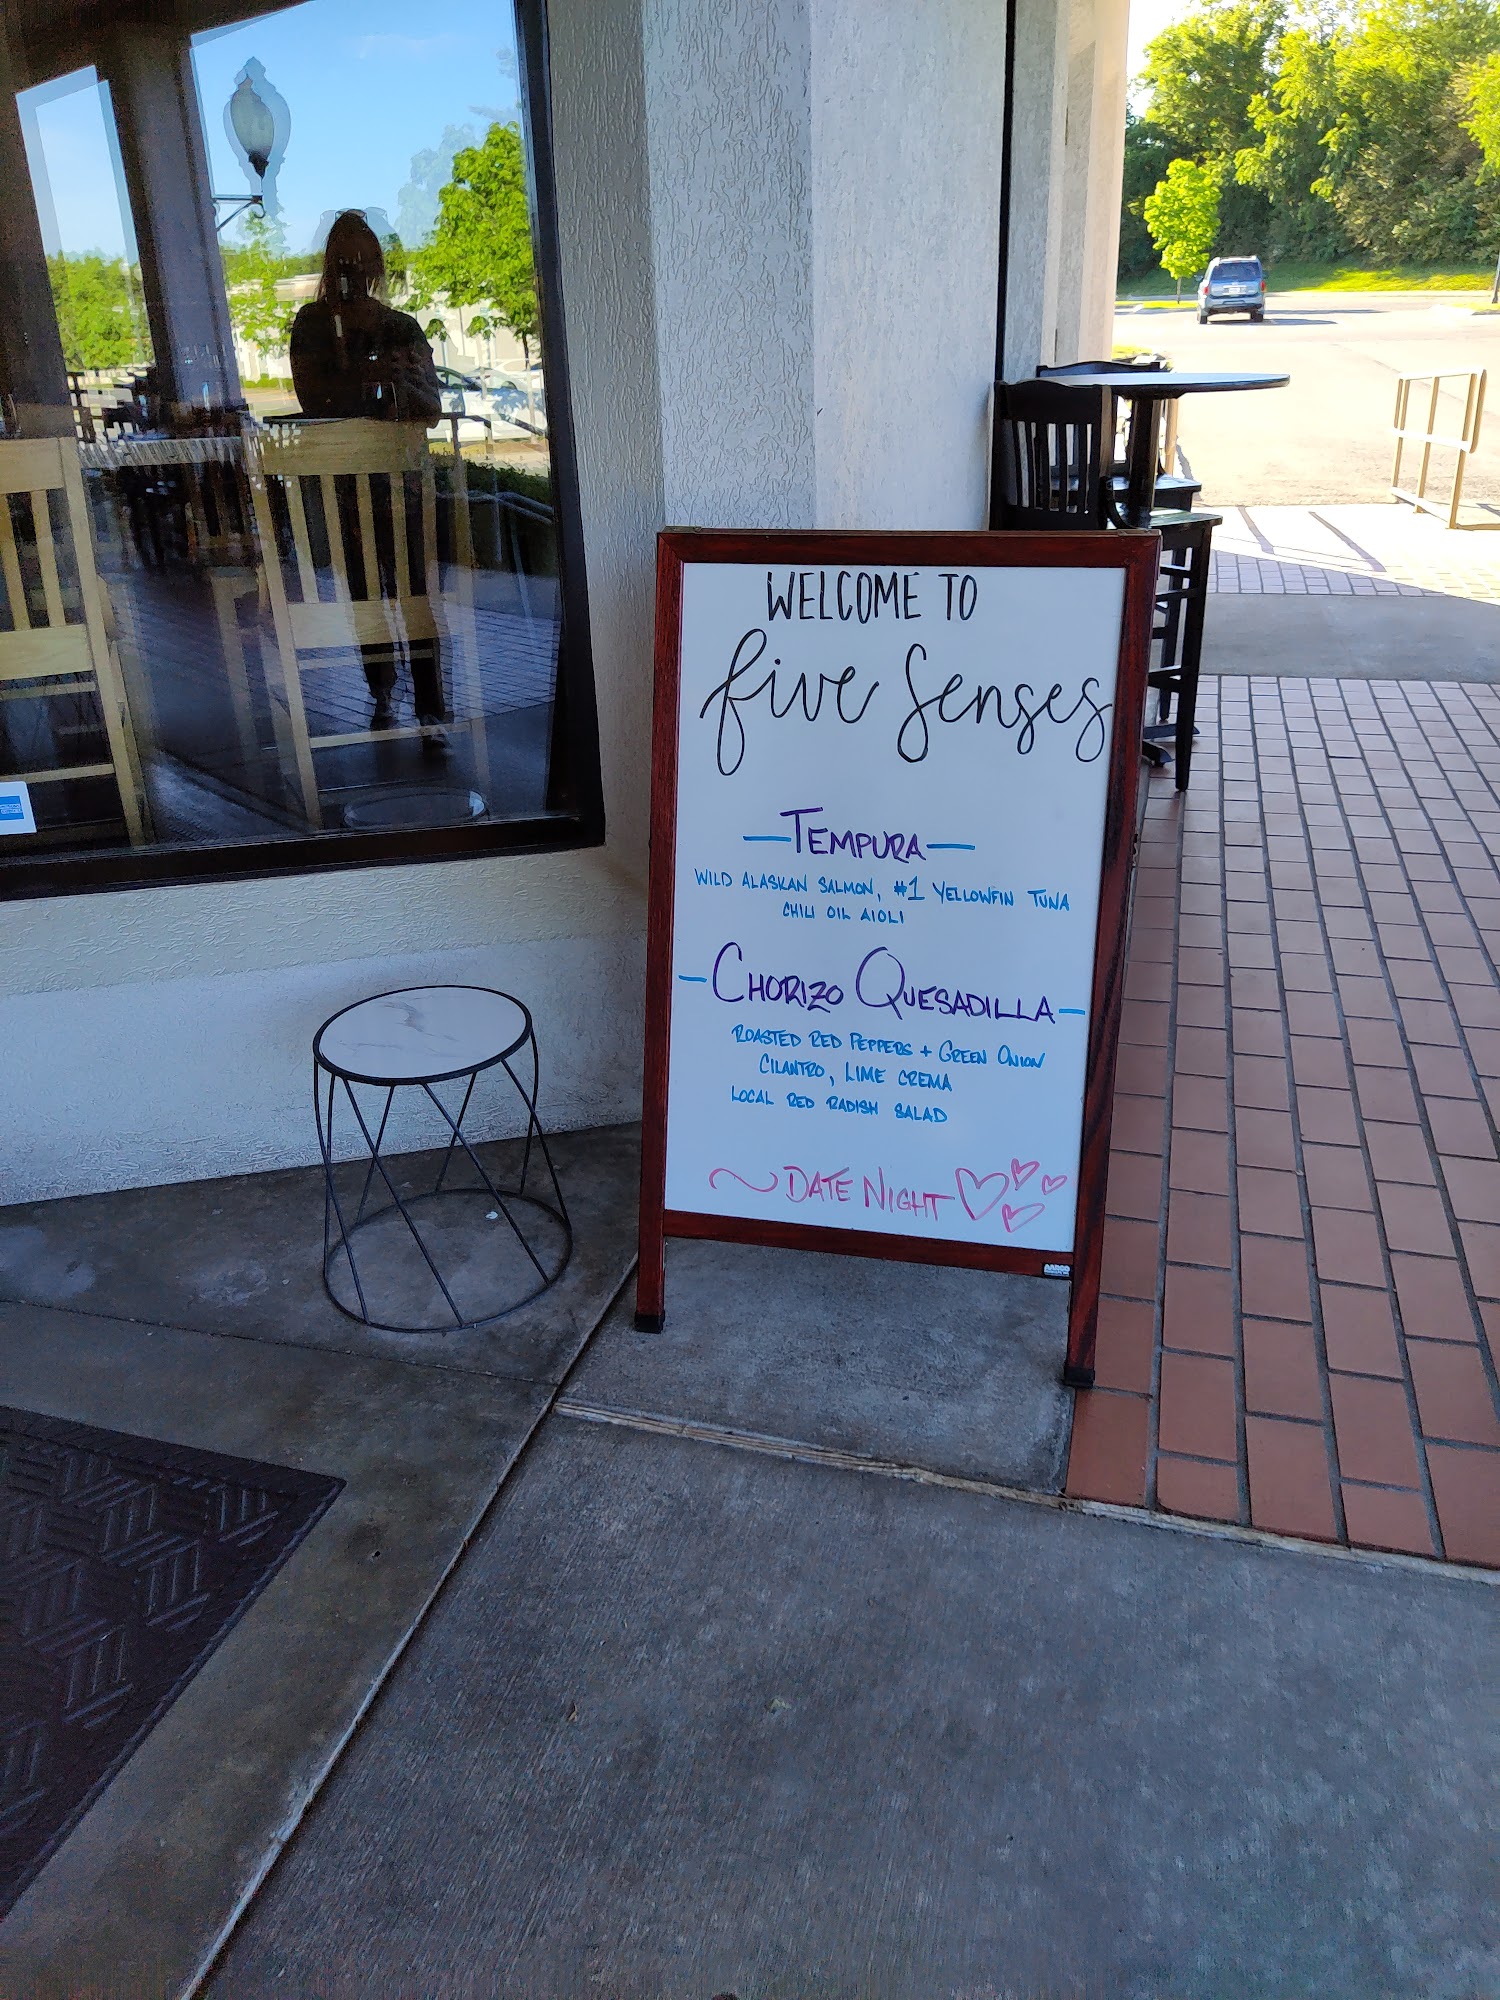 WELCOME TO
five senses
—TEMPURA—
WILD ALASKAN SALMON, #1 YELLOWFIN TUNA
CHILI OIL AIOLI
—CHORIZO QUESADILLA—
ROASTED RED PEPPERS + GREEN ONION
CILANTRO, LIME CREMA
LOCAL RED RADISH SALAD
~DATE NIGHT
AARCO